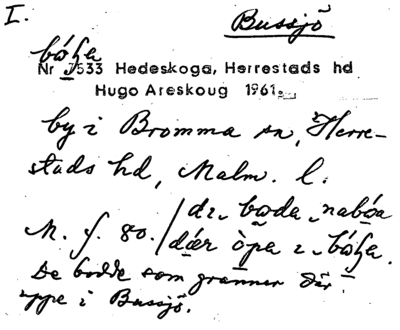 I. Bussjö
Nr 3533 Hedeskoga, Herrestads hd
Hugo Areskoug 1961.
by i Bromma sn, Herre-
stads hd, Malm. l.
di boda nabøa
M. f. 80. / dær òpa i
De bodde som grannar där
uppe i Bussjö.